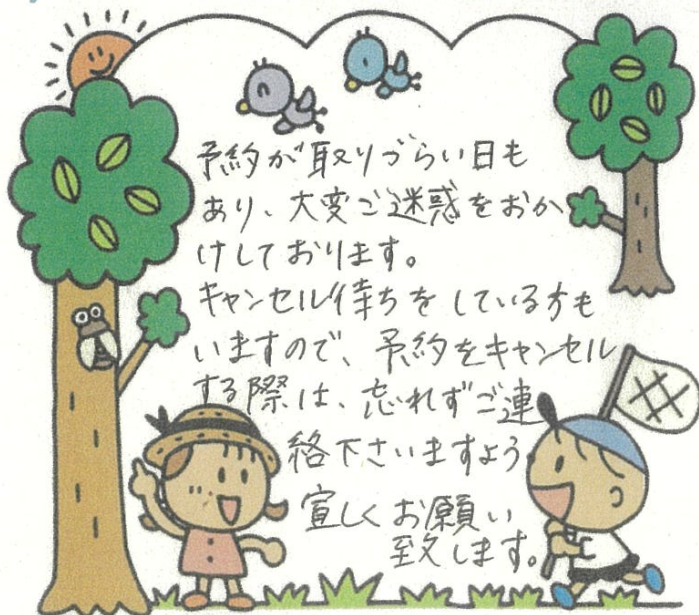 予約が取りづらい日も
あり、大変ご迷惑をおか
けしております。
キャンセル待ちをしている方も
いますので、予約をキャンセル
する際は、忘れずご連
絡下さいますよう
宜しくお願い
致します。